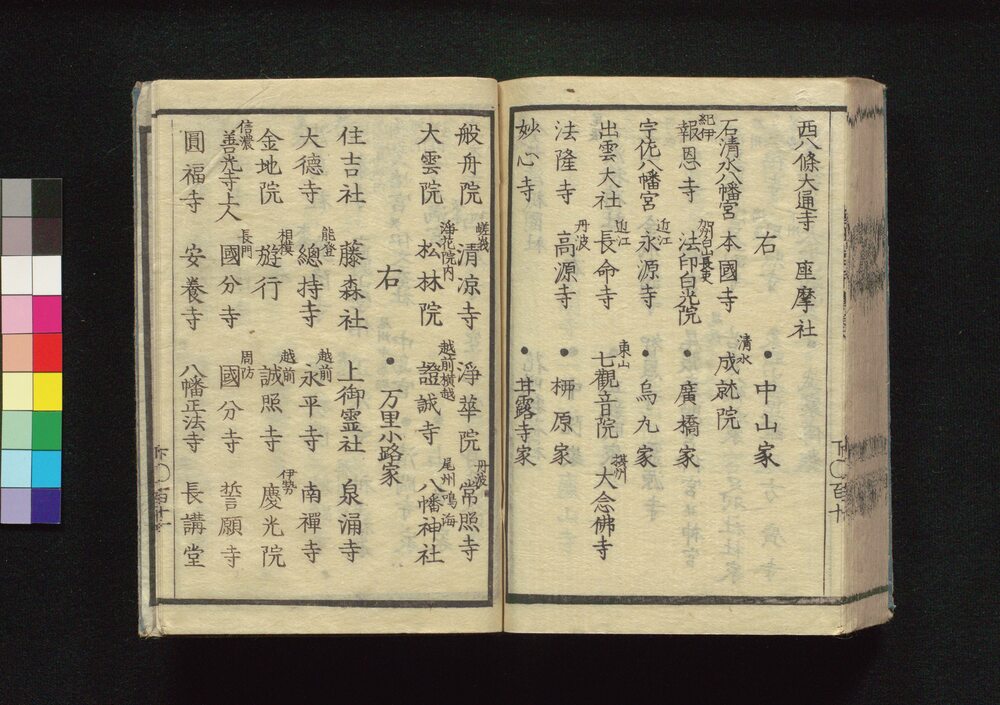 西八條大通寺　座摩社
右　●中山家
石清水八幡宮　本國寺　清水成就院
紀伊報恩寺　加州白山長吏法印白光院　●廣橋家
宇佐八幡宮　近江永源寺　●烏丸家
出雲大社　近江長命寺　東山七觀音院　摂州大念佛寺
法隆寺　丹波高源寺　●柳原家
妙心寺　●甘露寺家
下〇百十
般舟院　嵯峨清凉寺　淨華院　丹波常照寺
大雲院　浄花院内松林院　越前横越證誠寺　尾州鳴海八幡神社
右　●万里小路家
住吉社　藤森社　上御霊社　泉涌寺
大徳寺　能登總持寺　越前永平寺　南禪寺
金地院　相模遊行　越前誠照寺　伊勢慶光院
信濃善光寺上人　長門國分寺　周防國分寺　誓願寺
圓福寺　安養寺　八幡正法寺　長講堂
下〇百十一